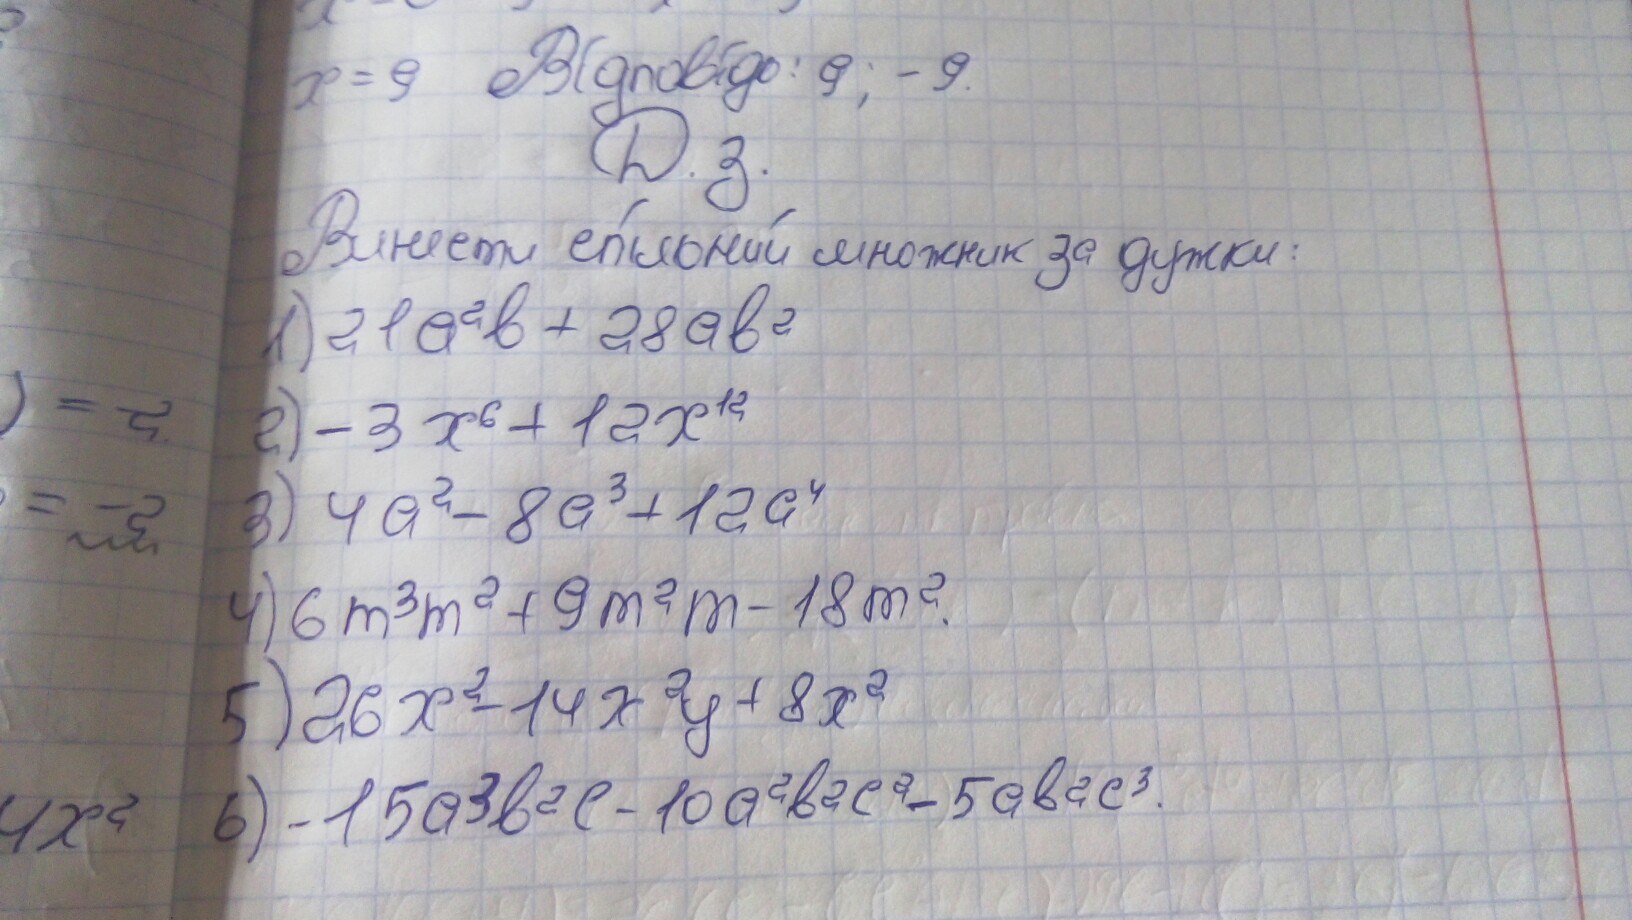 x = 9 Відповідь: 9; -9.
Д. З.
Винести спільний множник за дужки:
1) 21a²b + 28ab²
) = -2. 2) -3x⁶ + 12x¹²
= -2 3) 4a² - 8a³ + 12a⁴
4) 6m³m² + 9m²m - 18m².
5) 26x² - 14x²y + 8x²
4x² 6) -15a³b²c - 10a²b²c² - 5ab²c³.